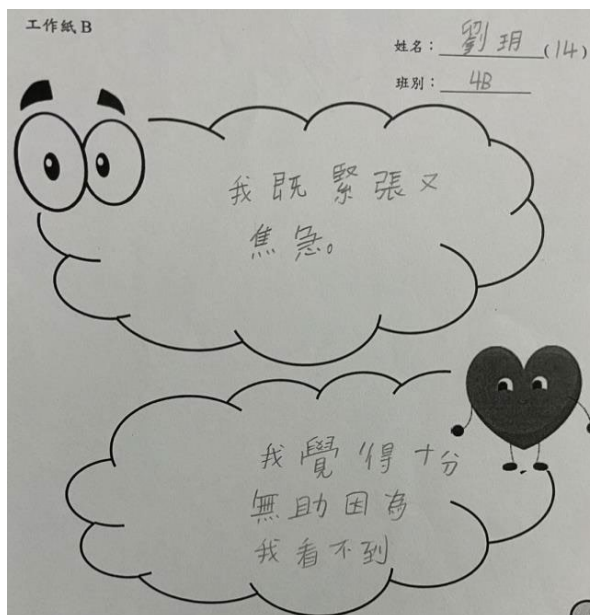 工作紙 B
姓名：劉玥(14)
班別：4B
我既緊張又
焦急。
我覺得十分
無助因為
我看不到